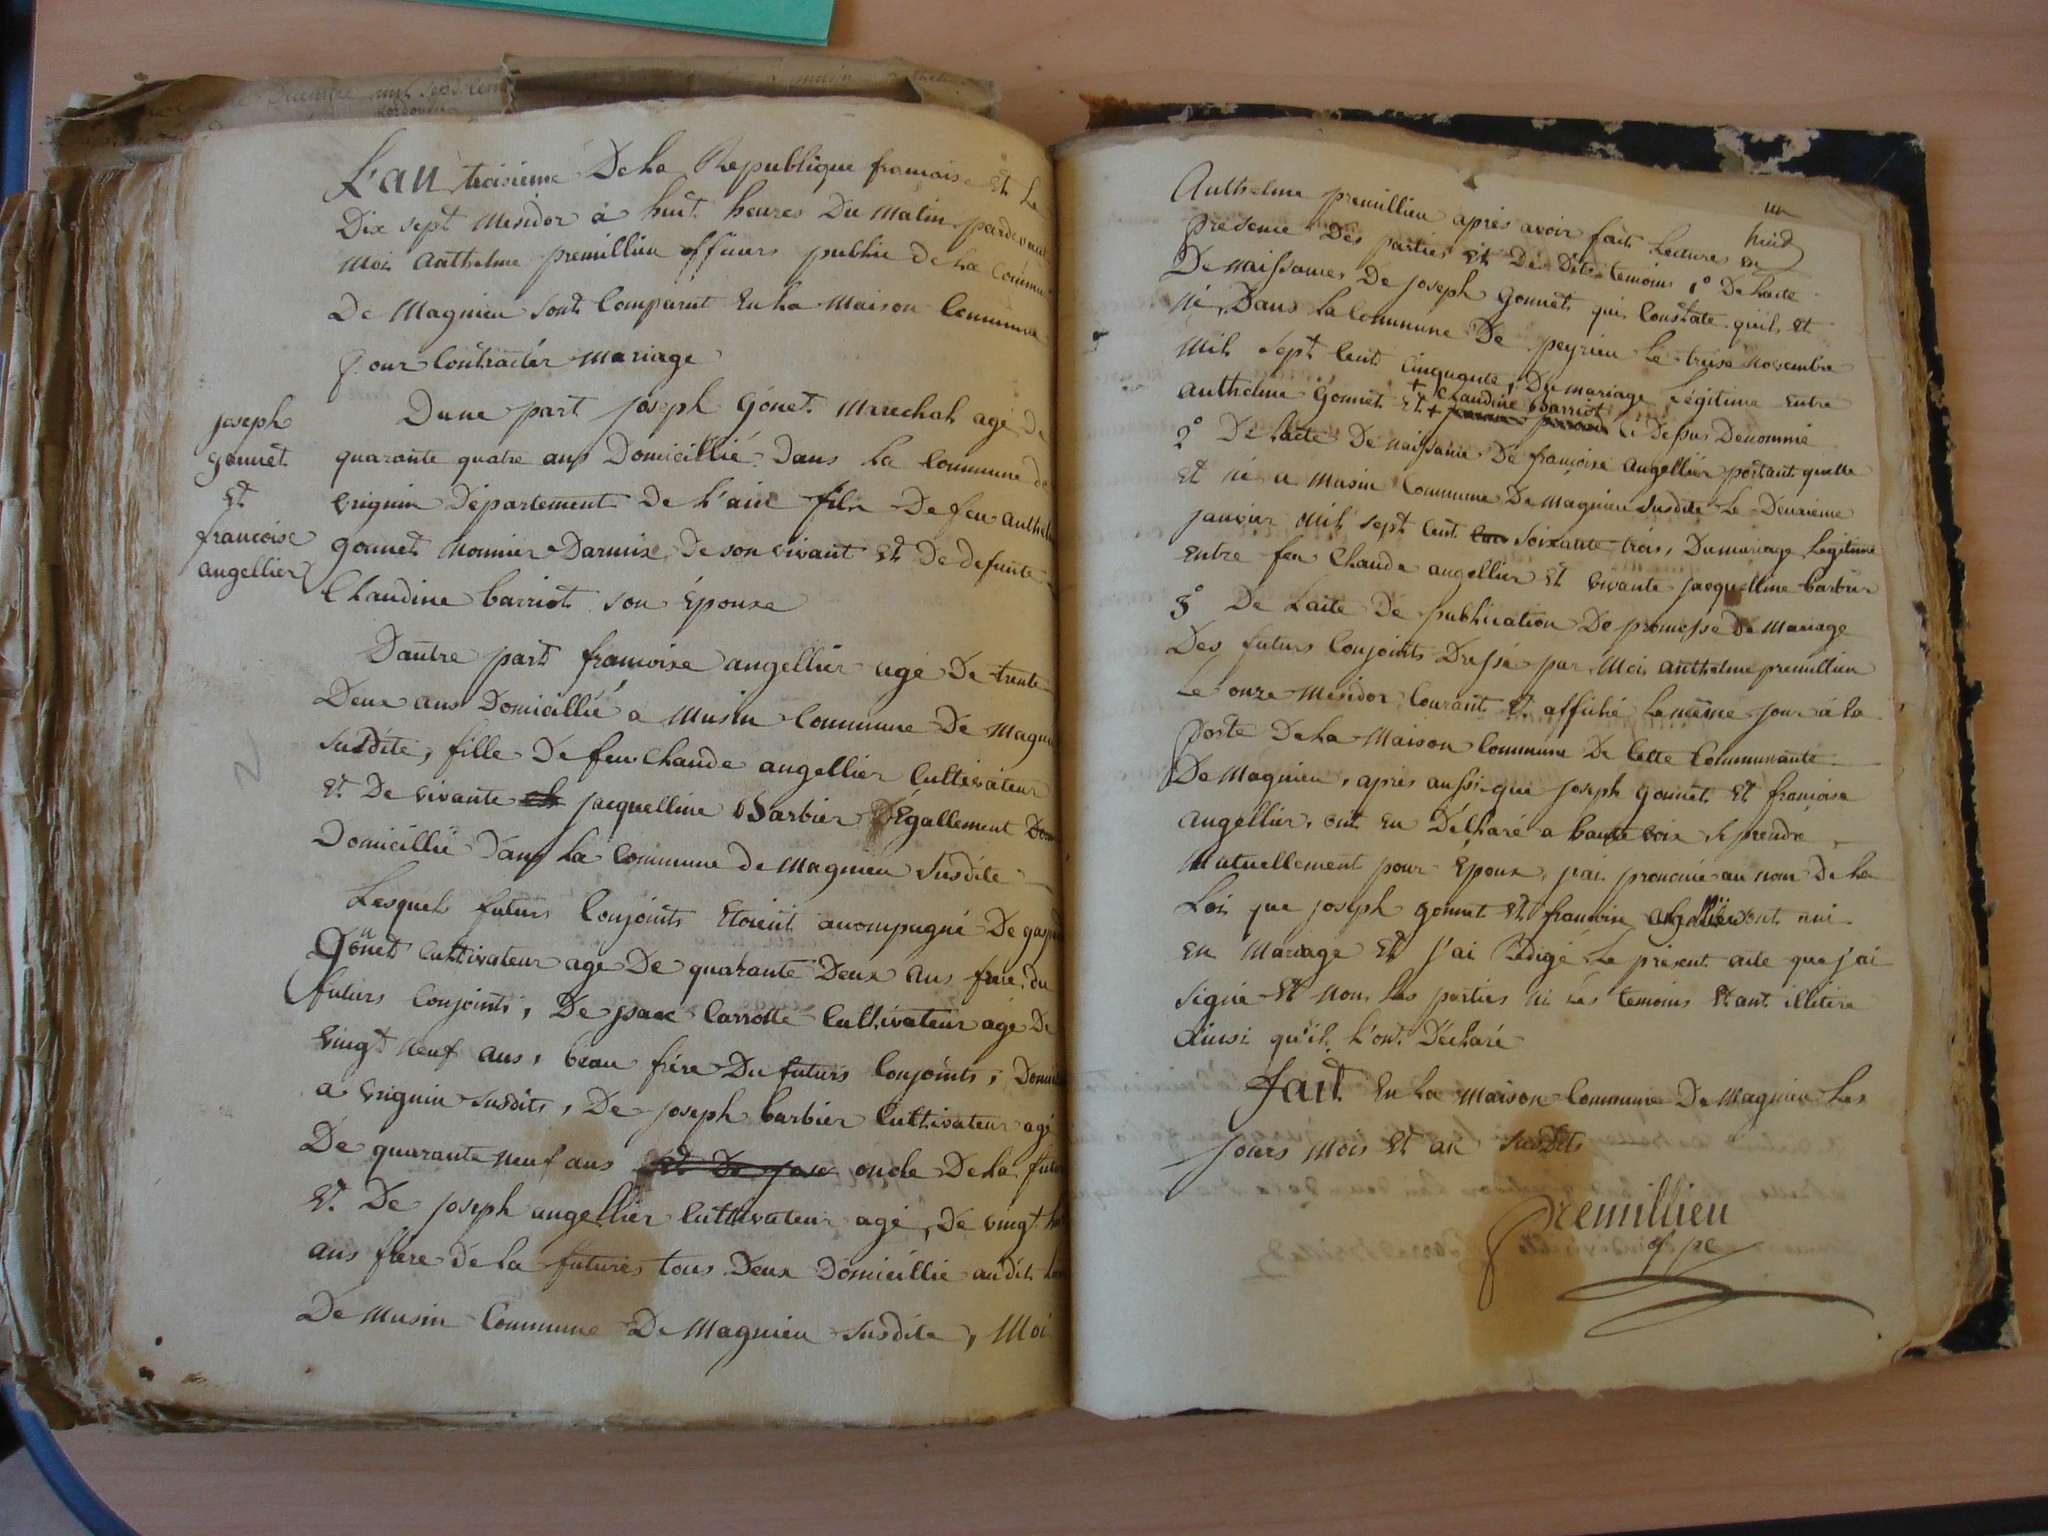 L'an troisieme De la Republique francaise Et Le
Dix sept Mesidor à huit heures Du Matin pardevant
Moi Anthelme premillieu officiers public de La Commu
De Magnieu sont Comparut En La Maison Commune
pour Contracter Mariage
Joseph
gonnet
Et
francoise
angellier
Dune part joseph Gonet Marechal agé de
quarante quatre ans Domicillié Dans La Commune de
Vrignin Département De L'ain fils De feu Anthel
gonnet Monnier Darmix De son vivant Et De defunte
Claudine barriot son Épouse
Dautre part francoise angellier agé De trente
Deux ans Domicillié a Musin Commune De Magni
susdite, fille De feu Claude angellier Cultivateur
Et De vivante jacquelline Barbier Égallement Dom
Domicillié Dans La Commune de Magnieu susdite
Lesquels futurs Conjoints Etoient accompagné De gasp
Gonet Cultivateur agé De quarante Deux ans frere du
futurs Conjoints, De isaac Carrotte Cultivateur agé De
vingt neuf ans, beau frére Du futurs Conjoints, Domici
a Vrignin susdits, De joseph barbier Cultivateur agé
De quarante neuf ans Et De jose oncle De la futu
Et De joseph angellier Cultivateur agé, De vingt hu
ans frere De La futures tous Deux Domicillié audit
De Musin Commune De Magnieu susdite, Moi
un
huid
Anthelme premillieu aprés avoir fait Lecture En
présence Des parties Et De Dits temoins 1° De Lacte
De naissance De joseph gonnet qui Constate quil Et
né Dans La Commune De peyrieu Le treise novembre
Mil sept Cent Cinquante, Du mariage Légitime Entre
+ Claudine Barriot
Anthelme Gonnet Et + Ci Desus Dénommé
2° De Lacte De naissance De francoise Angellier portant quelle
Et né a Musin Commune De Magnieu susdite Le Deuxieme
janvier Mil sept Cent soixante trois, Du mariage Legitime
Entre feu Claude angellier Et vivante jacquelline barbier
3° De Lacte De publication De promesse De Mariage
Des futurs Conjoints Dressé par Moi anthelme premillieu
Le onze Mesidor Courant Et affiché Le même jour a la
porte De La Maison Commune De Cette Communauté
De Magnieu, aprés aussi que joseph gonnet Et francoise
angellier, ont Eu Déclaré a haute voix se prendre
Mutuellement pour Epoux, j'ai prononcé au nom De la
Loi que joseph gonnet Et francoise angellier sont uni
En Mariage Et J'ai Rédigé Le présent acte que j'ai
signé Et non Les parties ni Les temoins Etant illitéré
Ainsi qu'il L'ont Déclaré
fait En La Maison Commune De Magnieu Les
jours Mois Et an susdits
Premillieu